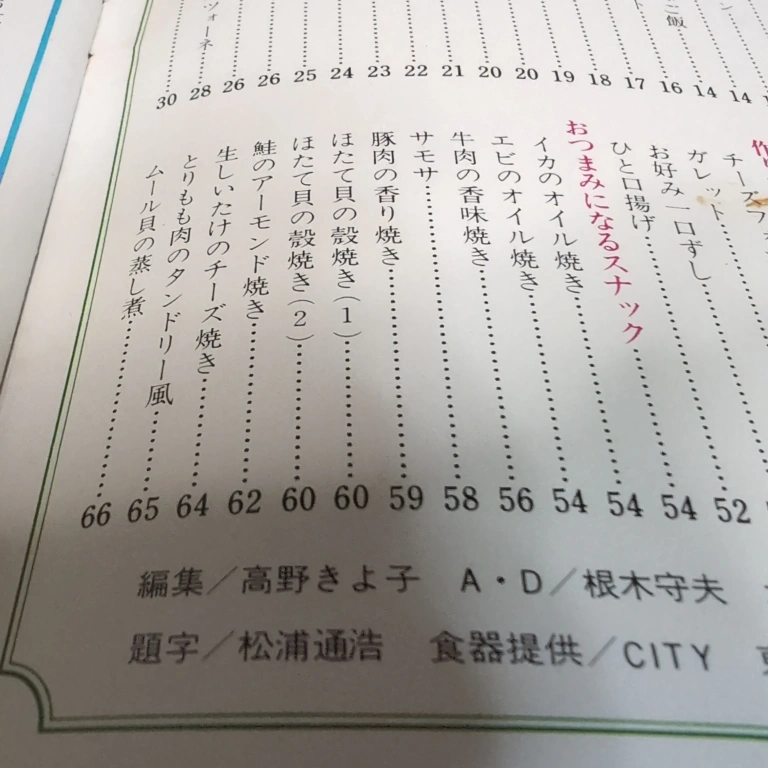 ン
14
14
ご飯
16
ト
17
18
19
20
20
21
22
23
24
25
26
26
ツォーネ
28
30
チーズフ
ガレット
お好み一口ずし
ひと口揚げ 52
おつまみになるスナック 54
イカのオイル焼き 54
エビのオイル焼き 54
牛肉の香味焼き 56
サモサ 58
豚肉の香り焼き 59
ほたて貝の殻焼き(1) 60
ほたて貝の殻焼き(2) 60
鮭のアーモンド焼き 62
生しいたけのチーズ焼き 64
とりもも肉のタンドリー風 65
ムール貝の蒸し煮 66
編集/高野きよ子 A・D/根木守夫
題字/松浦通浩 食器提供/CITY